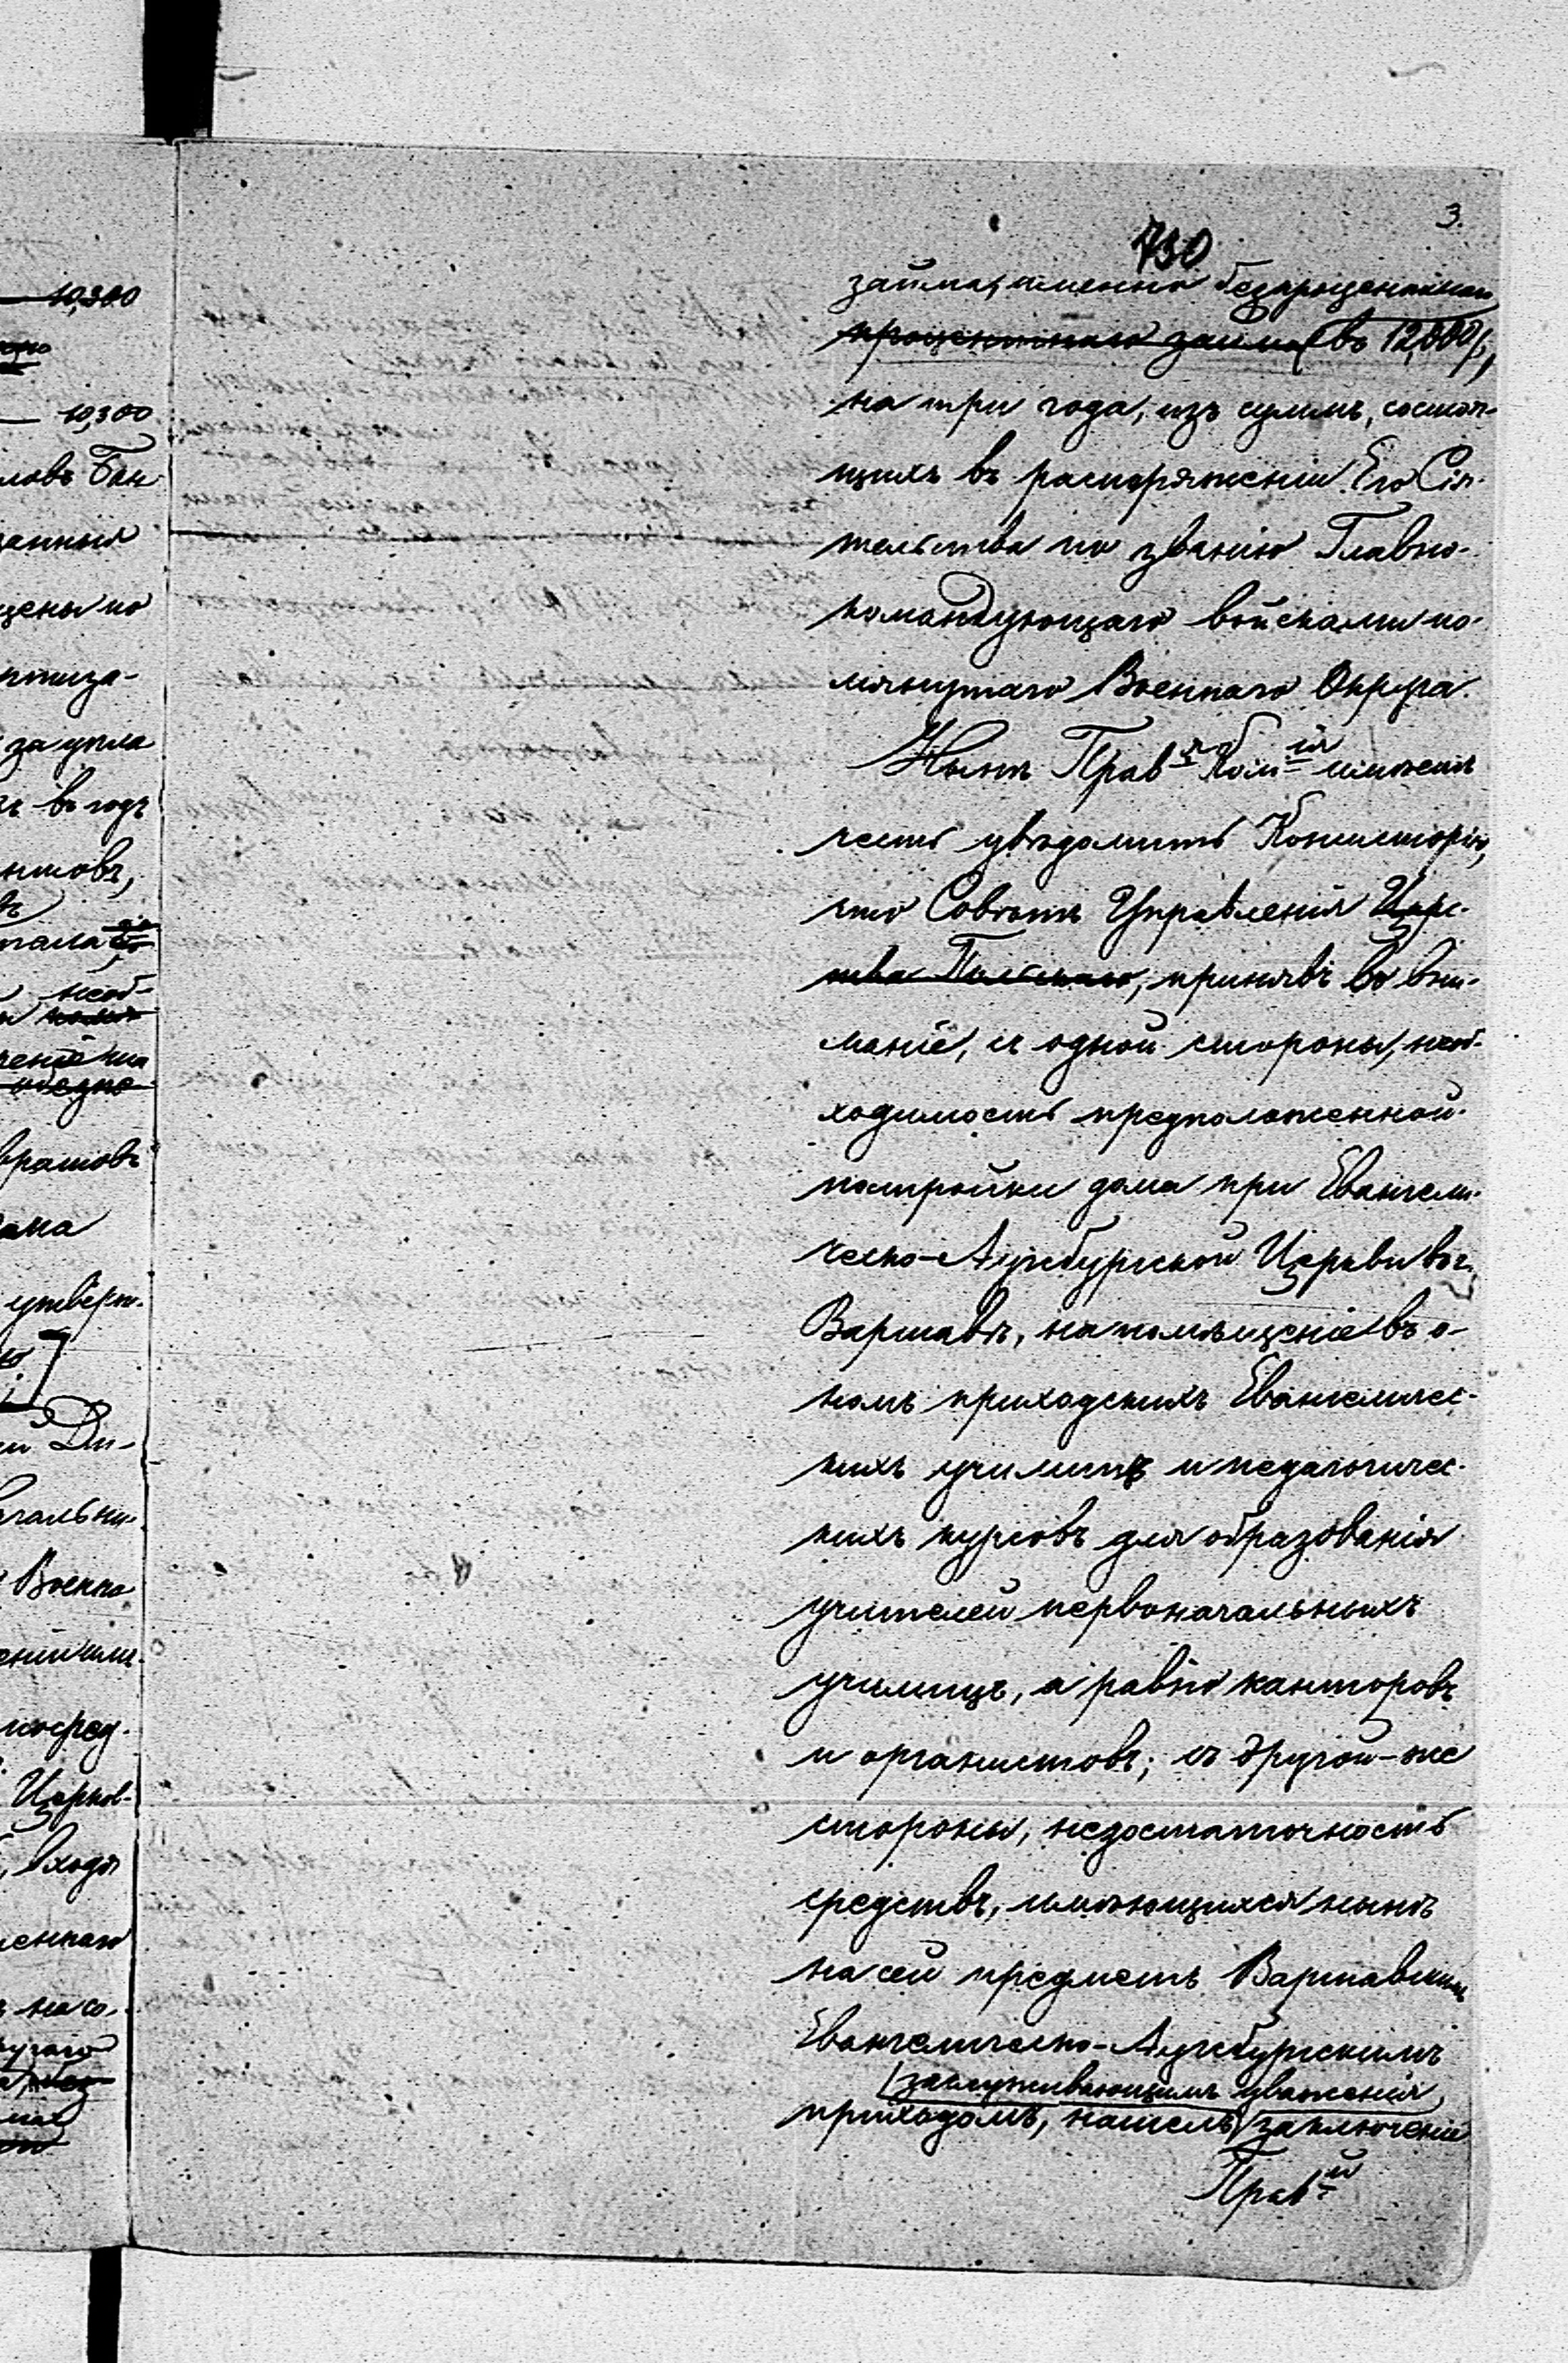 3.
730
займа, именно безпроцентнаго
процентнаго займа въ 12,000 р,
на три года, изъ суммъ, состоя-
щихъ въ распоряженіи Его Сія-
тельства по званію Главно-
командующаго войсками по-
мянутаго Военнаго Округа.
Нынѣ Прав.я Ком.ія имѣетъ
честь увѣдомить Консисторію,
что Совѣтъ Управленія Царс-
тва Польскаго, принявъ во вни-
маніе, съ одной стороны, необ-
ходимость предположенной
постройки дома при Евангели-
ческо-Аугсбургской Церкви въ
Варшавѣ, на помѣщеніе въ о-
номъ приходскихъ Евангеличес-
кихъ училищъ и педагогичес-
кихъ курсовъ для образованія
учителей первоначальныхъ
училищъ, а равно канторовъ
и органистовъ; съ другой-же
стороны, недостаточность
средствъ, имѣющихся нынѣ
на сей предметъ Варшавскимъ
Евангелическо-Аугсбургскимъ
заслуживающимъ уваженія
приходомъ, нашелъ заключеніе
Прав.й
10,300
10,300
ловъ Бан-
данныя
цены по
ртиза-
за упла
въ годъ
нтовъ,
необ-
вратовъ
утверж-
Ди-
чальни-
Военна
посред-
Церков-
входя
на со-